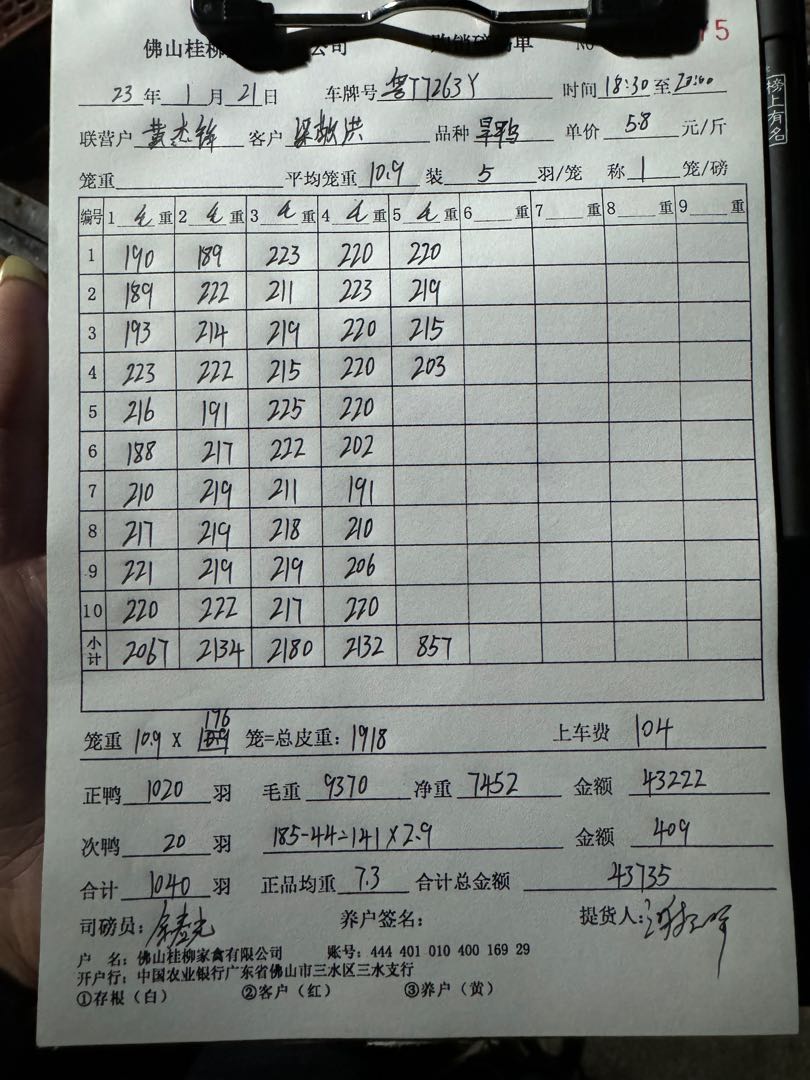 佛山桂柳 公司 购销磅码单 NO 5
23 年 1 月 21 日 车牌号 粤T7263Y 时间 18:30 至 20:00
联营户 黄杰锋 客户 梁 洪 品种 旱鸭 单价 5.8 元/斤
笼重 平均笼重 10.9 装 5 羽/笼 称 1 笼/磅
编号 1 毛 重 2 毛 重 3 毛 重 4 毛 重 5 毛 重 6 重 7 重 8 重 9 重
1 190 189 223 220 220
2 189 222 211 223 219
3 193 214 219 220 215
4 223 222 215 220 203
5 216 191 225 220
6 188 217 222 202
7 210 219 211 191
8 217 219 218 210
9 221 219 219 206
10 220 222 217 220
小计 2067 2134 2180 2132 857
笼重 10.9 X 176 笼=总皮重: 1918 上车费 104
正鸭 1020 羽 毛重 9370 净重 7452 金额 43222
次鸭 20 羽 185-44=141×2.9 金额 409
合计 1040 羽 正品均重 7.3 合计总金额 43735
司磅员: 养户签名: 提货人:
户 名: 佛山桂柳家禽有限公司 账号: 444 401 010 400 169 29
开户行: 中国农业银行广东省佛山市三水区三水支行
①存根（白） ②客户（红） ③养户（黄）
榜上有名